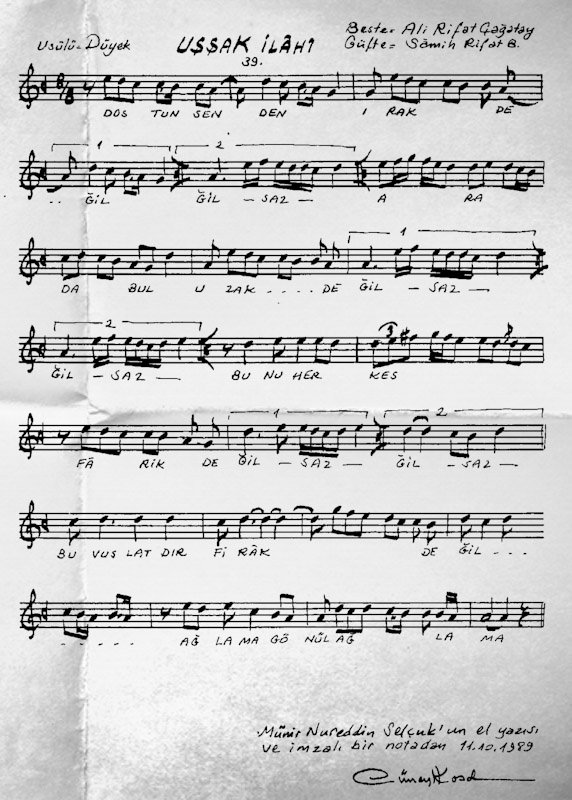 Usûlü= Düyek
UŞŞAK İLÂHÎ
39.
Beste= Ali Rifat Çağatay
Güfte= Sâmih Rifat B.
DOS TUN SEN DEN I RAK DE
1 2
.. ĞİL ĞİL - SAZ - A RA
1
DA BUL U ZAK .... DE ĞİL - SAZ -
2
ĞİL - SAZ - BU NU HER KES
3
1 2
FÂ RİK DE ĞİL - SAZ - ĞİL - SAZ -
BU VUS LAT DIR Fİ RÂK DE ĞİL ...
..... AĞ LA MA GÖ NÜL AĞ LA MA
Münir Nureddin Selçuk'un el yazısı
ve imzalı bir notadan 11.10.1989